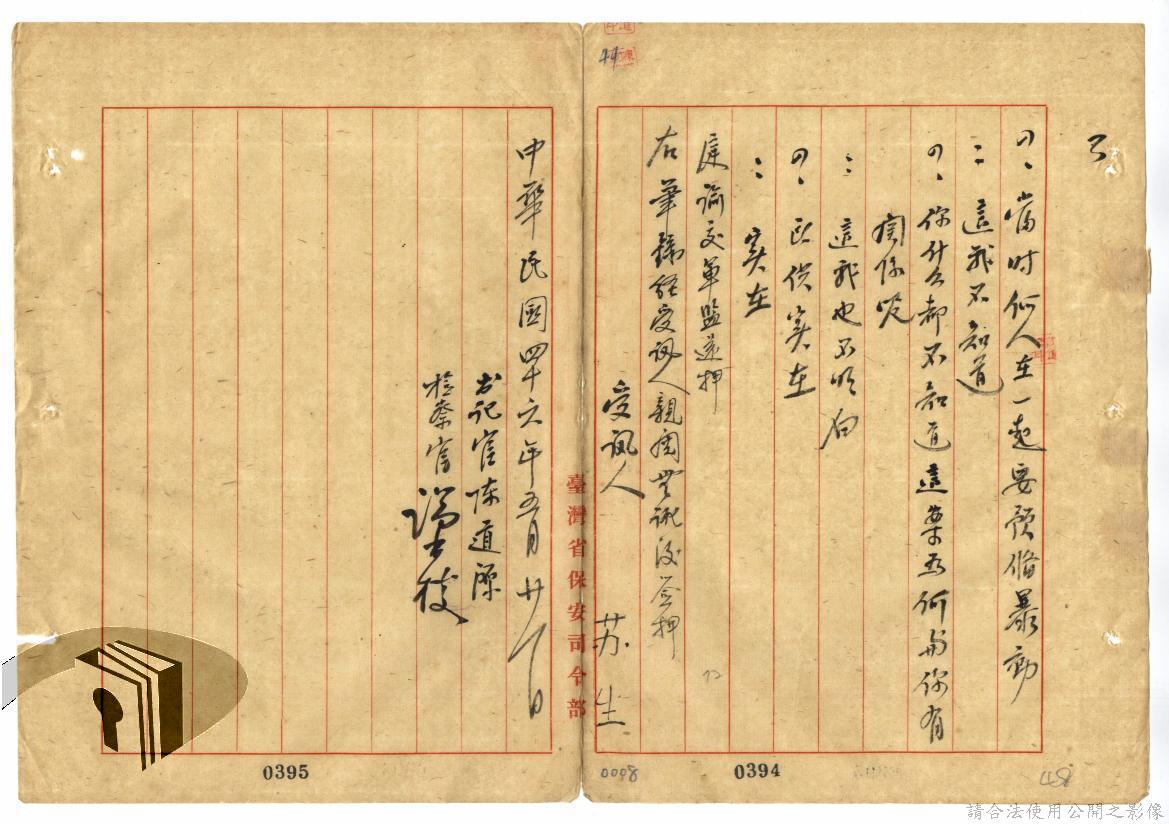 問、當時何人在一起要預備暴動
：這我不知道
問、你什么都不知道這案為何與你有
関係呢
：這我也不明白
問、所供实在
：实在
庭諭交軍監還押
右筆錄經受訊人親閱無訛後簽押
受訊人 苏生
臺灣省保安司令部
中華民國四十六年五月廿八日
书记官陈道深
檢察官
0394
0395
0008
請合法使用公開之影像